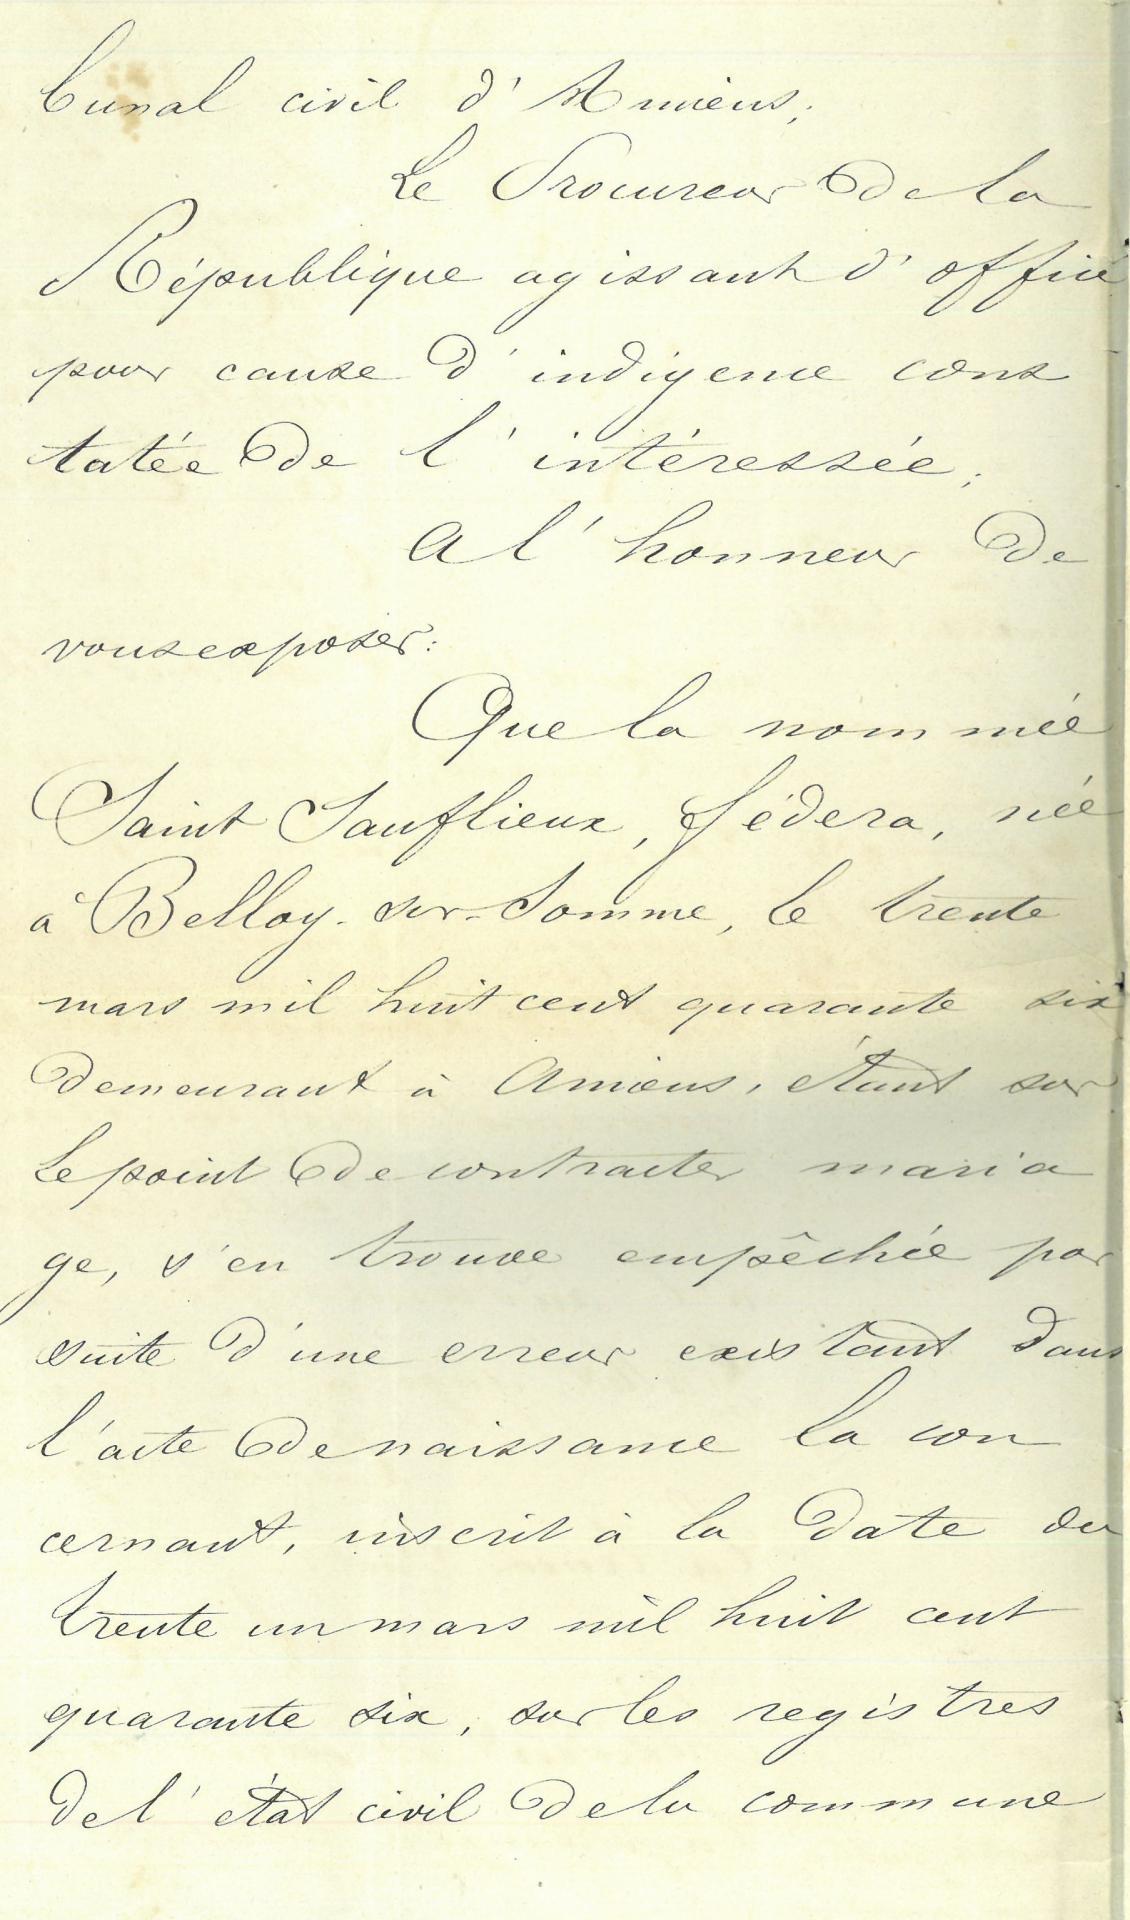 bunal civil d'Amiens;
Le Procureur de la
République agissant d'office
pour cause d'indigence cons
tatée de l'intéressée;
A l'honneur de
vous exposer:
Que la nommée
Saint Sauflieux, Fédera, née
à Belloy-sur-Somme, le trente
mars mil huit cent quarante six
demeurant à Amiens, étant sur
le point de contracter maria
ge, s'en trouve empêchée par
suite d'une erreur existant dans
l'acte de naissance la con
cernant, inscrit à la date du
trente un mars mil huit cent
quarante six, sur les registres
de l'état civil de la commune